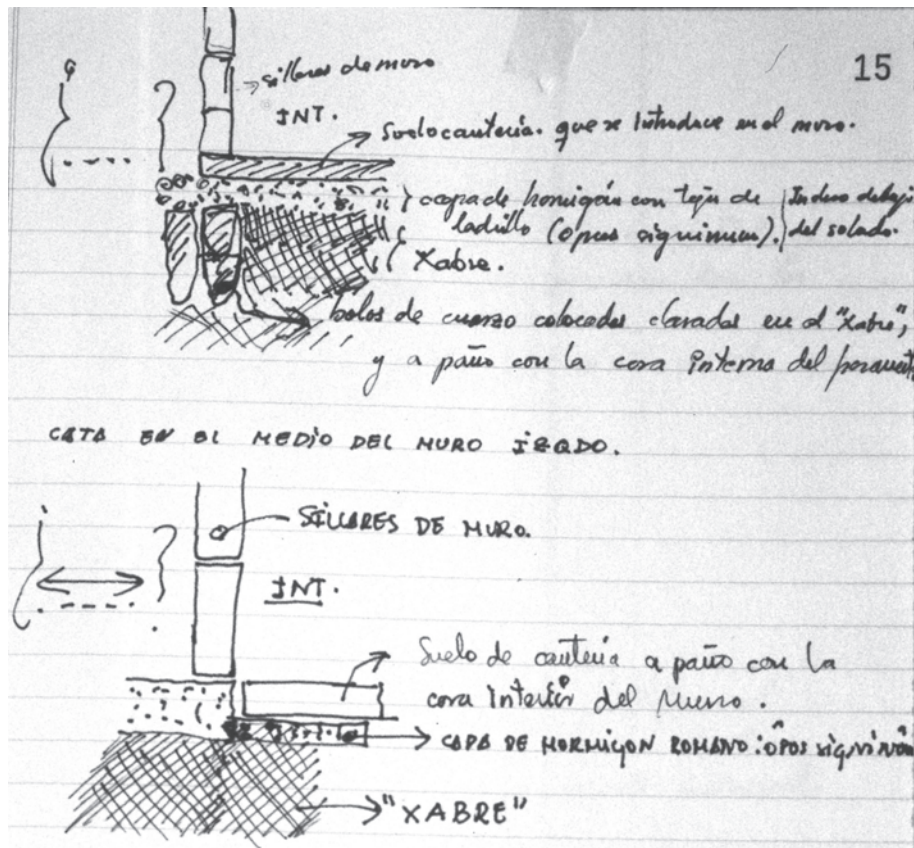 15
sillares de muro
INT.
Suelo cantería. que se introduce en el muro.
capa de homigón con teja de
ladillo (opus siguinum).
Incluso debajo
del solado.
Xabre.
bolos de cuarzo colocados clavados en el "Xabre",
y a paño con la cara interna del
CATA EN EL MEDIO DEL MURO IZQDO.
SILLARES DE MURO.
INT.
Suelo de cantería a paño con la
cara interior del Muro.
CAPA DE HORMIGON ROMANO: OPUS
"XABRE"